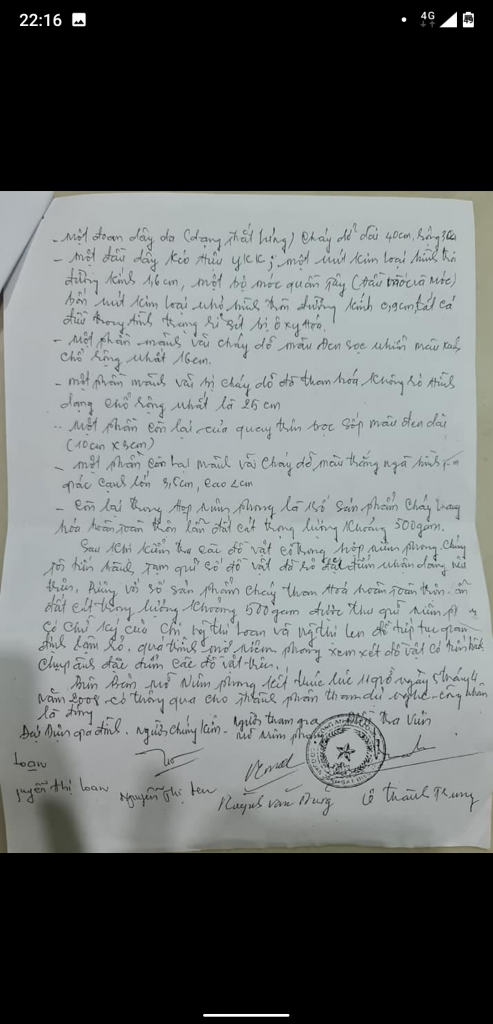 22:16
4G
- Một đoạn dây da (dạng thắt lưng) cháy dở dài 40cm, rộng
- một đầu dây kéo hiệu YKK; một nút kim loại hình tròn
đường kính 1,6cm, một bộ móc quần tây
bốn nút kim loại nhỏ hình tròn đường kính 0,9cm, tất cả
đều trong tình trạng rỉ sét bị ôxy hóa.
- Một phần mảnh vải cháy dở màu đen sọc nhiều màu xanh
chỗ rộng nhất 16cm.
- một phần mảnh vải bị cháy dở đã than hóa không rõ hình
dạng chỗ rộng nhất là 25cm
- Một phần còn lại của quay trên bọc sốp màu đen dài
(10cm x 3cm)
- một phần còn lại mảnh vải cháy dở màu trắng ngà hình
giác cạnh lớn 3,5cm, cao 2cm
- Còn lại trong hộp niêm phong là số sản phẩm cháy than
hóa hoàn toàn thôn lẫn đất cát trọng lượng khoảng 500gam.
Sau khi kiểm tra các đồ vật có trong hộp niêm phong. Chúng
tôi tiến hành tạm giữ số đồ vật đó đặc điểm nhận dạng nêu
trên. Riêng với số sản phẩm cháy than hóa hoàn toàn thôn lẫn
đất cát trọng lượng khoảng 500gam được thu giữ niêm
có chữ ký của chị Nguyễn Thị Loan và Nguyễn Thị Len để tiếp tục giám
định làm rõ. quá trình mở niêm phong xem xét đồ vật có tiến hành
chụp ảnh đặc điểm các đồ vật trên.
Biên Bản mở Niêm phong kết thúc lúc 11 giờ ngày 5 tháng 4
năm 2008 có thông qua cho thành phần tham dự nghe - công nhận
là đúng
Đại Diện gia đình. người chứng kiến. Người tham gia Điều Tra Viên
mở niêm phong
Loan
Nguyễn Thị Loan Nguyễn Thị Len Huỳnh Văn Dưng Lê Thành Trung